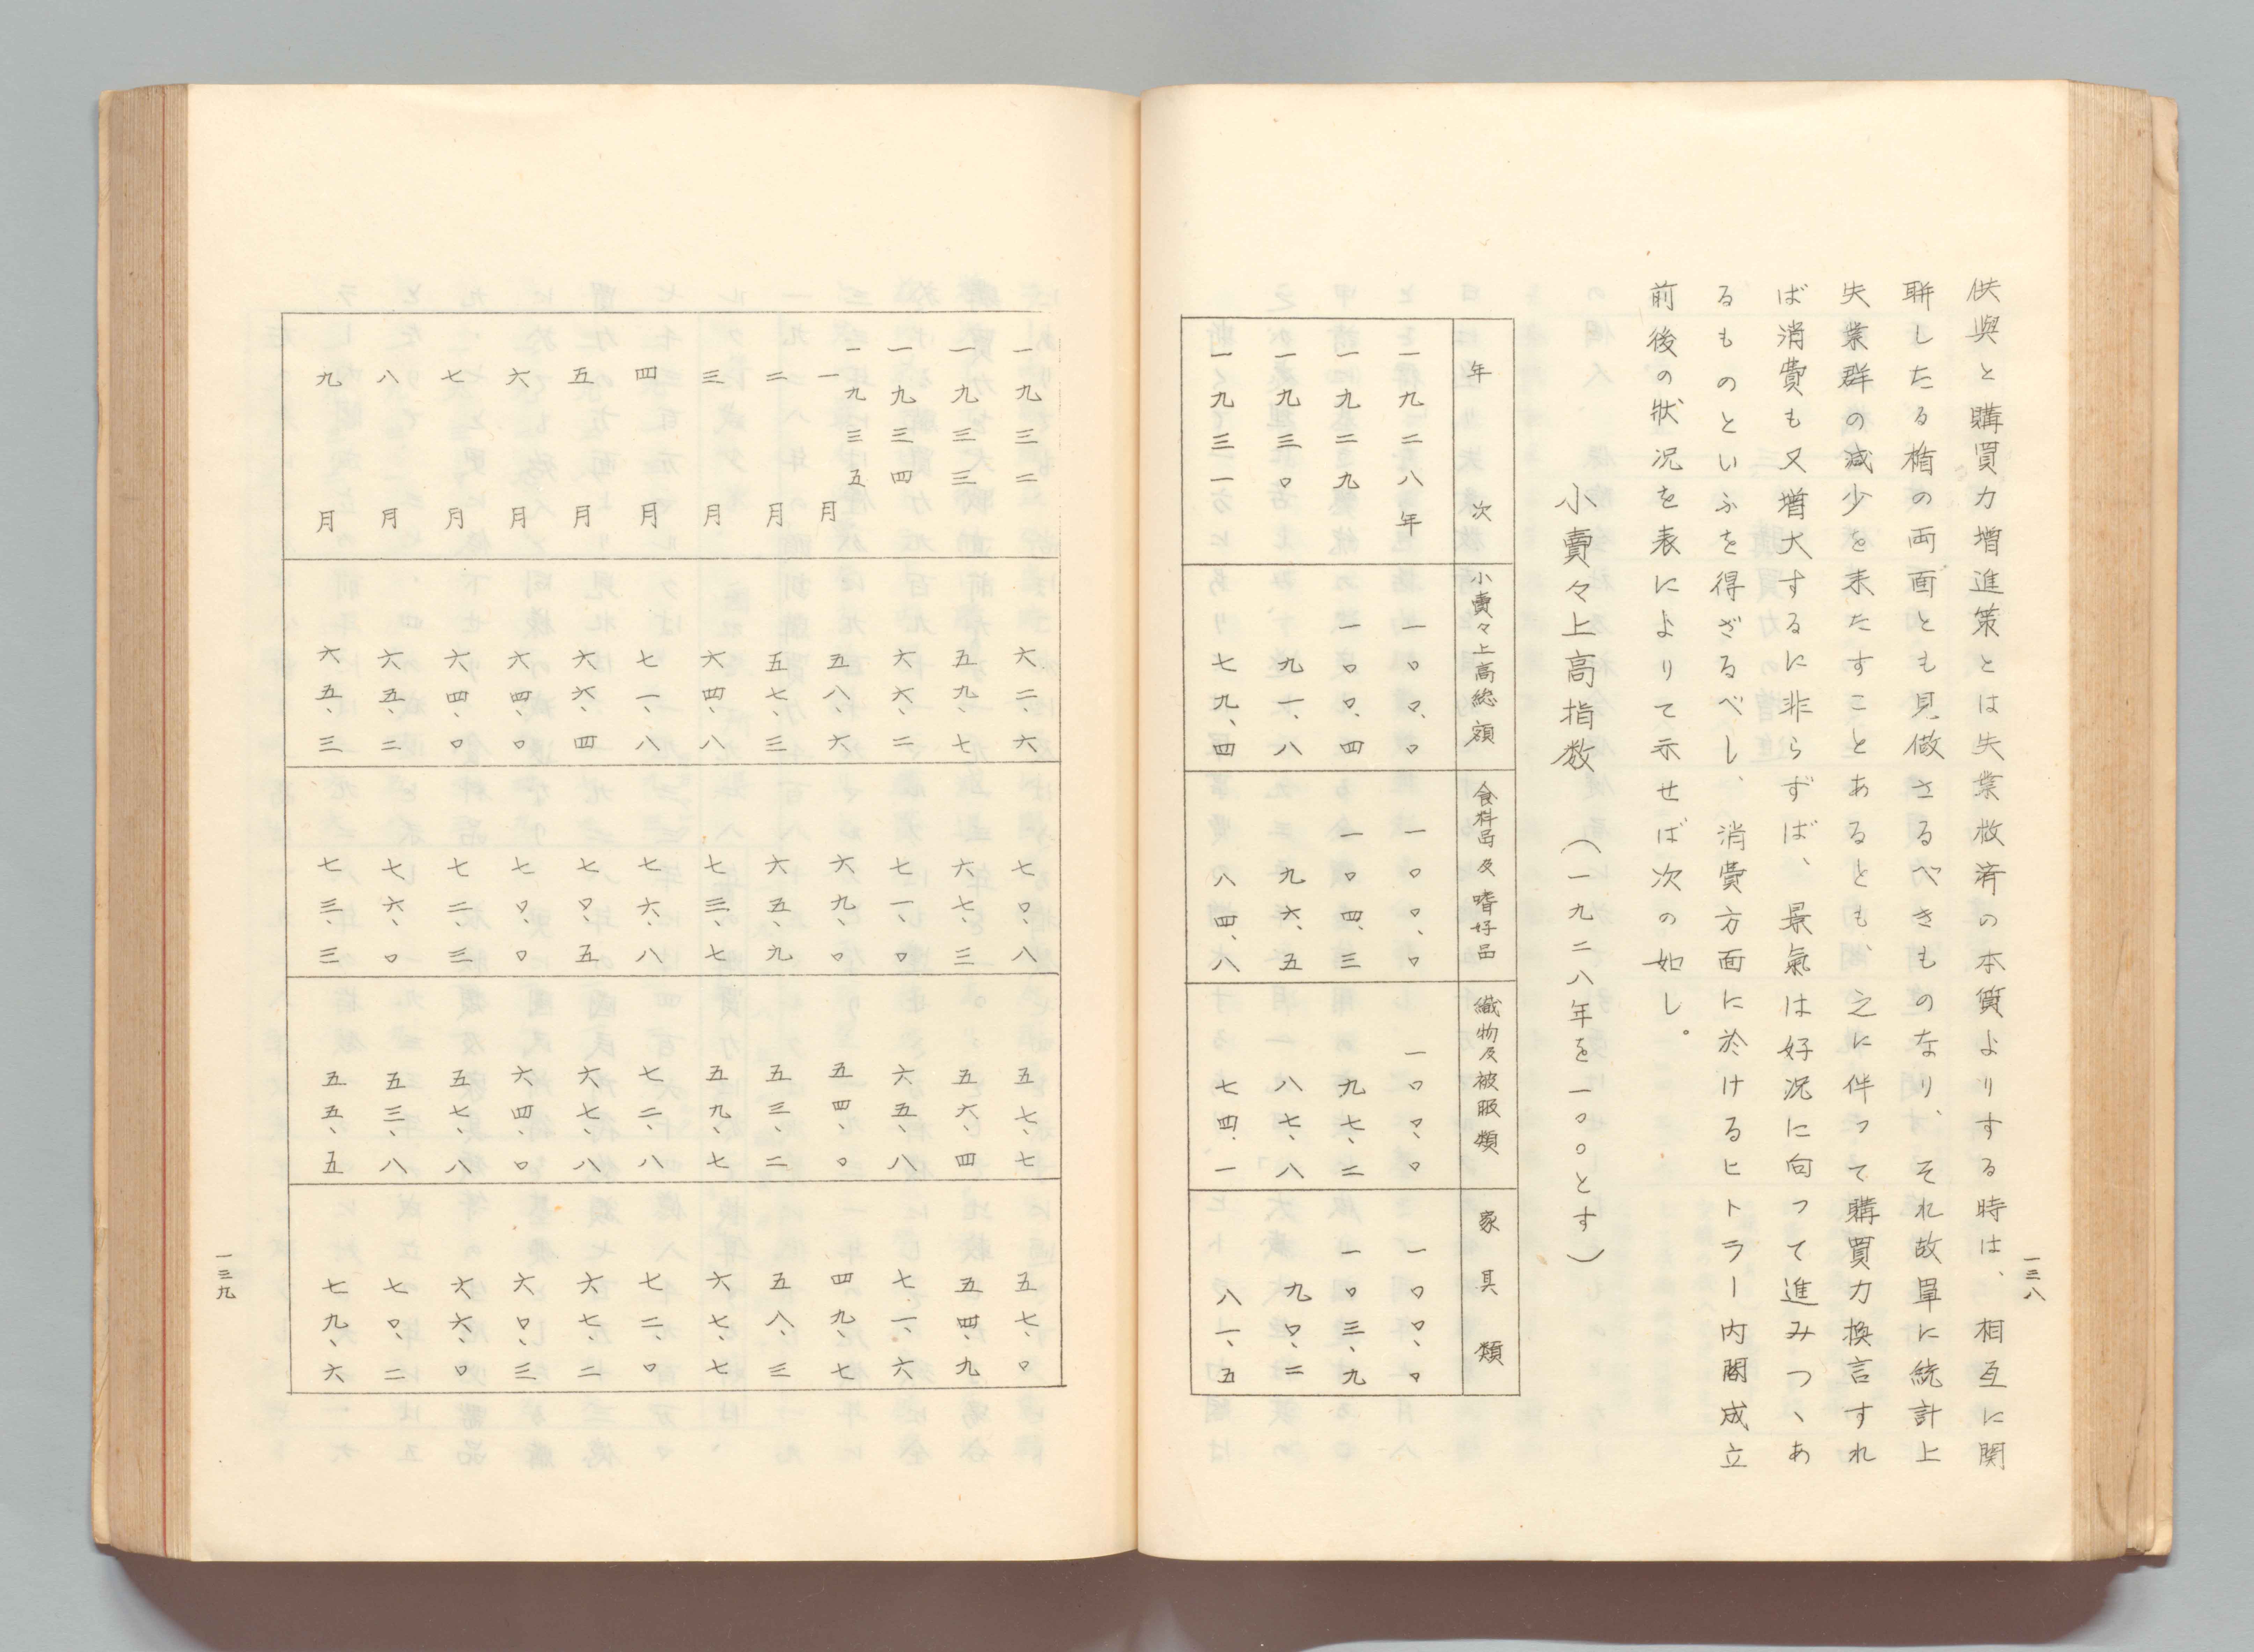 一三八
供與と購買力増進策とは失業救済の本質よりする時は、相互に関
聨したる楯の両面とも見做さるべきものなり、それ故単に統計上
失業群の減少を来たすことあるとも、之に伴って購買力換言すれ
ば消費も又増大するに非らずば、景氣は好況に向って進みつゝあ
るものといふを得ざるべし、消費方面に於けるヒトラー内閣成立
前後の狀况を表によりて示せば次の如し。
小賣々上高指数 (一九二八年を一〇〇とす)
年次 小賣々上高総額 食料品及嗜好品 織物及被服類 家具類
一九二八年 一〇〇、〇 一〇〇、〇 一〇〇、〇 一〇〇、〇
一九二九 一〇〇、四 一〇四、三 九七、二 一〇三、九
一九三〇 九一、八 九六、五 八七、八 九〇、二
一九三一 七九、四 八四、八 七四、一 八一、五
一九三二 六二、六 七〇、八 五七、七 五七、〇
一九三三 五九、七 六七、三 五六、四 五四、九
一九三四 六六、二 七一、〇 六五、八 七一、六
一九三五
一月 五八、六 六九、〇 五四、〇 四九、七
二月 五七、三 六五、九 五三、二 五八、三
三月 六四、八 七三、七 五九、七 六七、七
四月 七一、八 七六、八 七二、八 七二、〇
五月 六六、四 七〇、五 六七、八 六七、二
六月 六四、〇 七〇、〇 六四、〇 六〇、三
七月 六四、〇 七二、三 五七、八 六六、〇
八月 六五、二 七六、〇 五三、八 七〇、二
九月 六五、三 七三、三 五五、五 七九、六
一三九